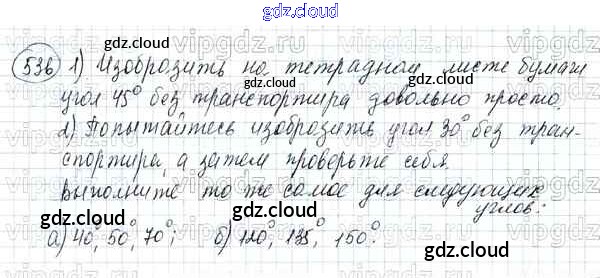 gdz.cloud
gdz.cloud
536 1) Изобразить на тетрадном листе бумаги
угол 45° без транспортира довольно просто,
2) Попытайтесь изобразить угол 30° без тран-
спортира, а затем проверьте себя.
Выполните то же самое для следующих
углов:
а) 40°, 50°, 70°; б) 120°, 135°, 150°.
gdz.cloud
gdz.cloud
gdz.cloud
gdz.cloud
gdz.cloud
gdz.cloud